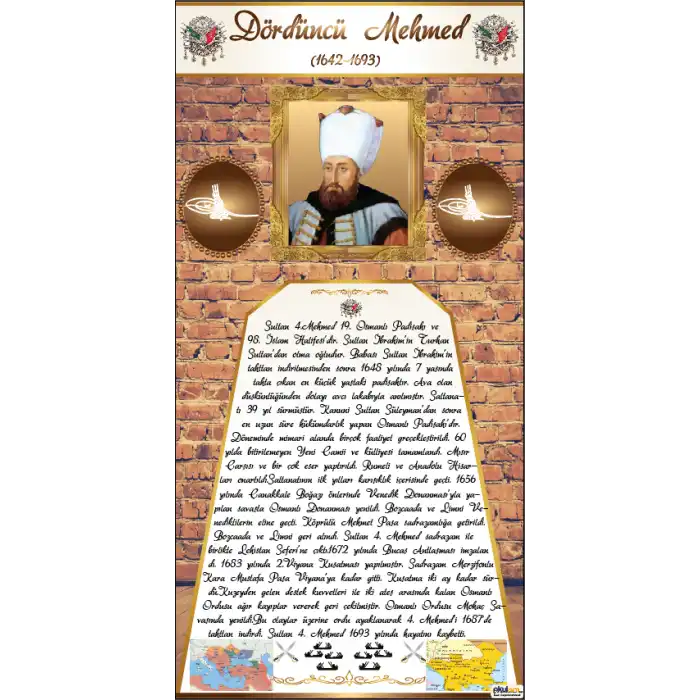 Dördüncü Mehmed
(1642-1693)
Sultan 4.Mehmed 19. Osmanlı Padişahı ve
98. İslam Halifesi'dir. Sultan İbrahim'in Turhan
Sultan'dan olma oğludur. Babası Sultan İbrahim'in
tahttan indirilmesinden sonra 1648 yılında 7 yaşında
tahta çıkan en küçük yaştaki padişahtır. Ava olan
düşkünlüğünden dolayı avcı lakabıyla anılmıştır. Saltana-
tı 39 yıl sürmüştür. Kanuni Sultan Süleyman'dan sonra
en uzun süre hükümdarlık yapan Osmanlı Padişahı'dır.
Döneminde mimari alanda birçok faaliyet greçekleştirildi. 60
yılda bitirilemeyen Yeni Camii ve külliyesi tamamlandı. Mısır
Çarşısı ve bir çok eser yaptırıldı. Rumeli ve Anadolu Hisar-
ları onartıldı.Saltanatının ilk yılları karışıklık içerisinde geçti. 1656
yılında Çanakkale Boğazı önlerinde Venedik Donanması'yla ya-
pılan savaşta Osmanlı Donanması yenildi. Bozcaada ve Limni Ve-
nediklilerin eline geçti. Köprülü Mehmet Paşa sadrazamlığa getirildi.
Bozcaada ve Limni geri alındı. Sultan 4. Mehmed sadrazam ile
birlikte Lehistan Seferi'ne çıktı.1672 yılında Bucaş Antlaşması imzalan
dı. 1683 yılında 2.Viyana Kuşatması yapılmıştır. Sadrazam Merzifonlu
Kara Mustafa Paşa Viyana'ya kadar gitti. Kuşatma iki ay kadar sür-
dü.Kuzeyden gelen destek kuvvetleri ile iki ateş arasında kalan Osmanlı
Ordusu ağır kayıplar vererek geri çekilmiştir. Osmanlı Ordusu Mohaç Sa-
vaşında yenildi.Bu olaylar üzerine ordu ayaklanarak 4. Mehmed'i 1687'de
tahttan indirdi. Sultan 4. Mehmed 1693 yılında hayatını kaybetti.